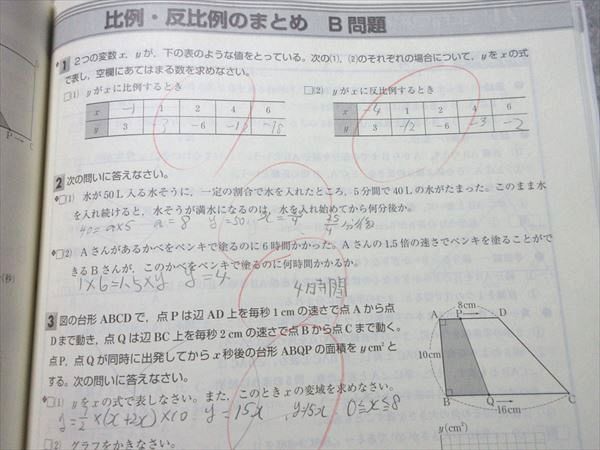 比例・反比例のまとめ B問題
1 2つの変数x, yが、下の表のような値をとっている。次の(1), (2)のそれぞれの場合について、yをxの式
で表し、空欄にあてはまる数を求めなさい。
□(1) yがxに比例するとき
x -1 1 2 4 6
y 3 -3 -6 -12 -18
□(2) yがxに反比例するとき
x -4 1 2 4 6
y 3 -12 -6 -3 -2
2 次の問いに答えなさい。
□(1) 水が50L入る水そうに、一定の割合で水を入れたところ、5分間で40Lの水がたまった。このまま水
を入れ続けると、水そうが満水になるのは、水を入れ始めてから何分後か。
40=a×5 a=8 y=50 25/4分後
□(2) Aさんがあるかべをペンキで塗るのに6時間かかった。Aさんの1.5倍の速さでペンキを塗ることがで
きるBさんが、このかべをペンキで塗るのに何時間かかるか。
1×6=1.5×y y=4
4時間
3 図の台形ABCDで、点Pは辺AD上を毎秒1cmの速さで点Aから点
Dまで動き、点Qは辺BC上を毎秒2cmの速さで点Bから点Cまで動く。
点P, 点Qが同時に出発してからx秒後の台形ABQPの面積をy cm²と
する。次の問いに答えなさい。
□(1) yをxの式で表しなさい。また、このときxの変域を求めなさい。
y=1/2×(x+2x)×10 y=15x y=15x 0≦x≦8
□(2) グラフをかきなさい。
8cm
A P D
10cm
B Q C
16cm
y(cm²)
P C
(秒)